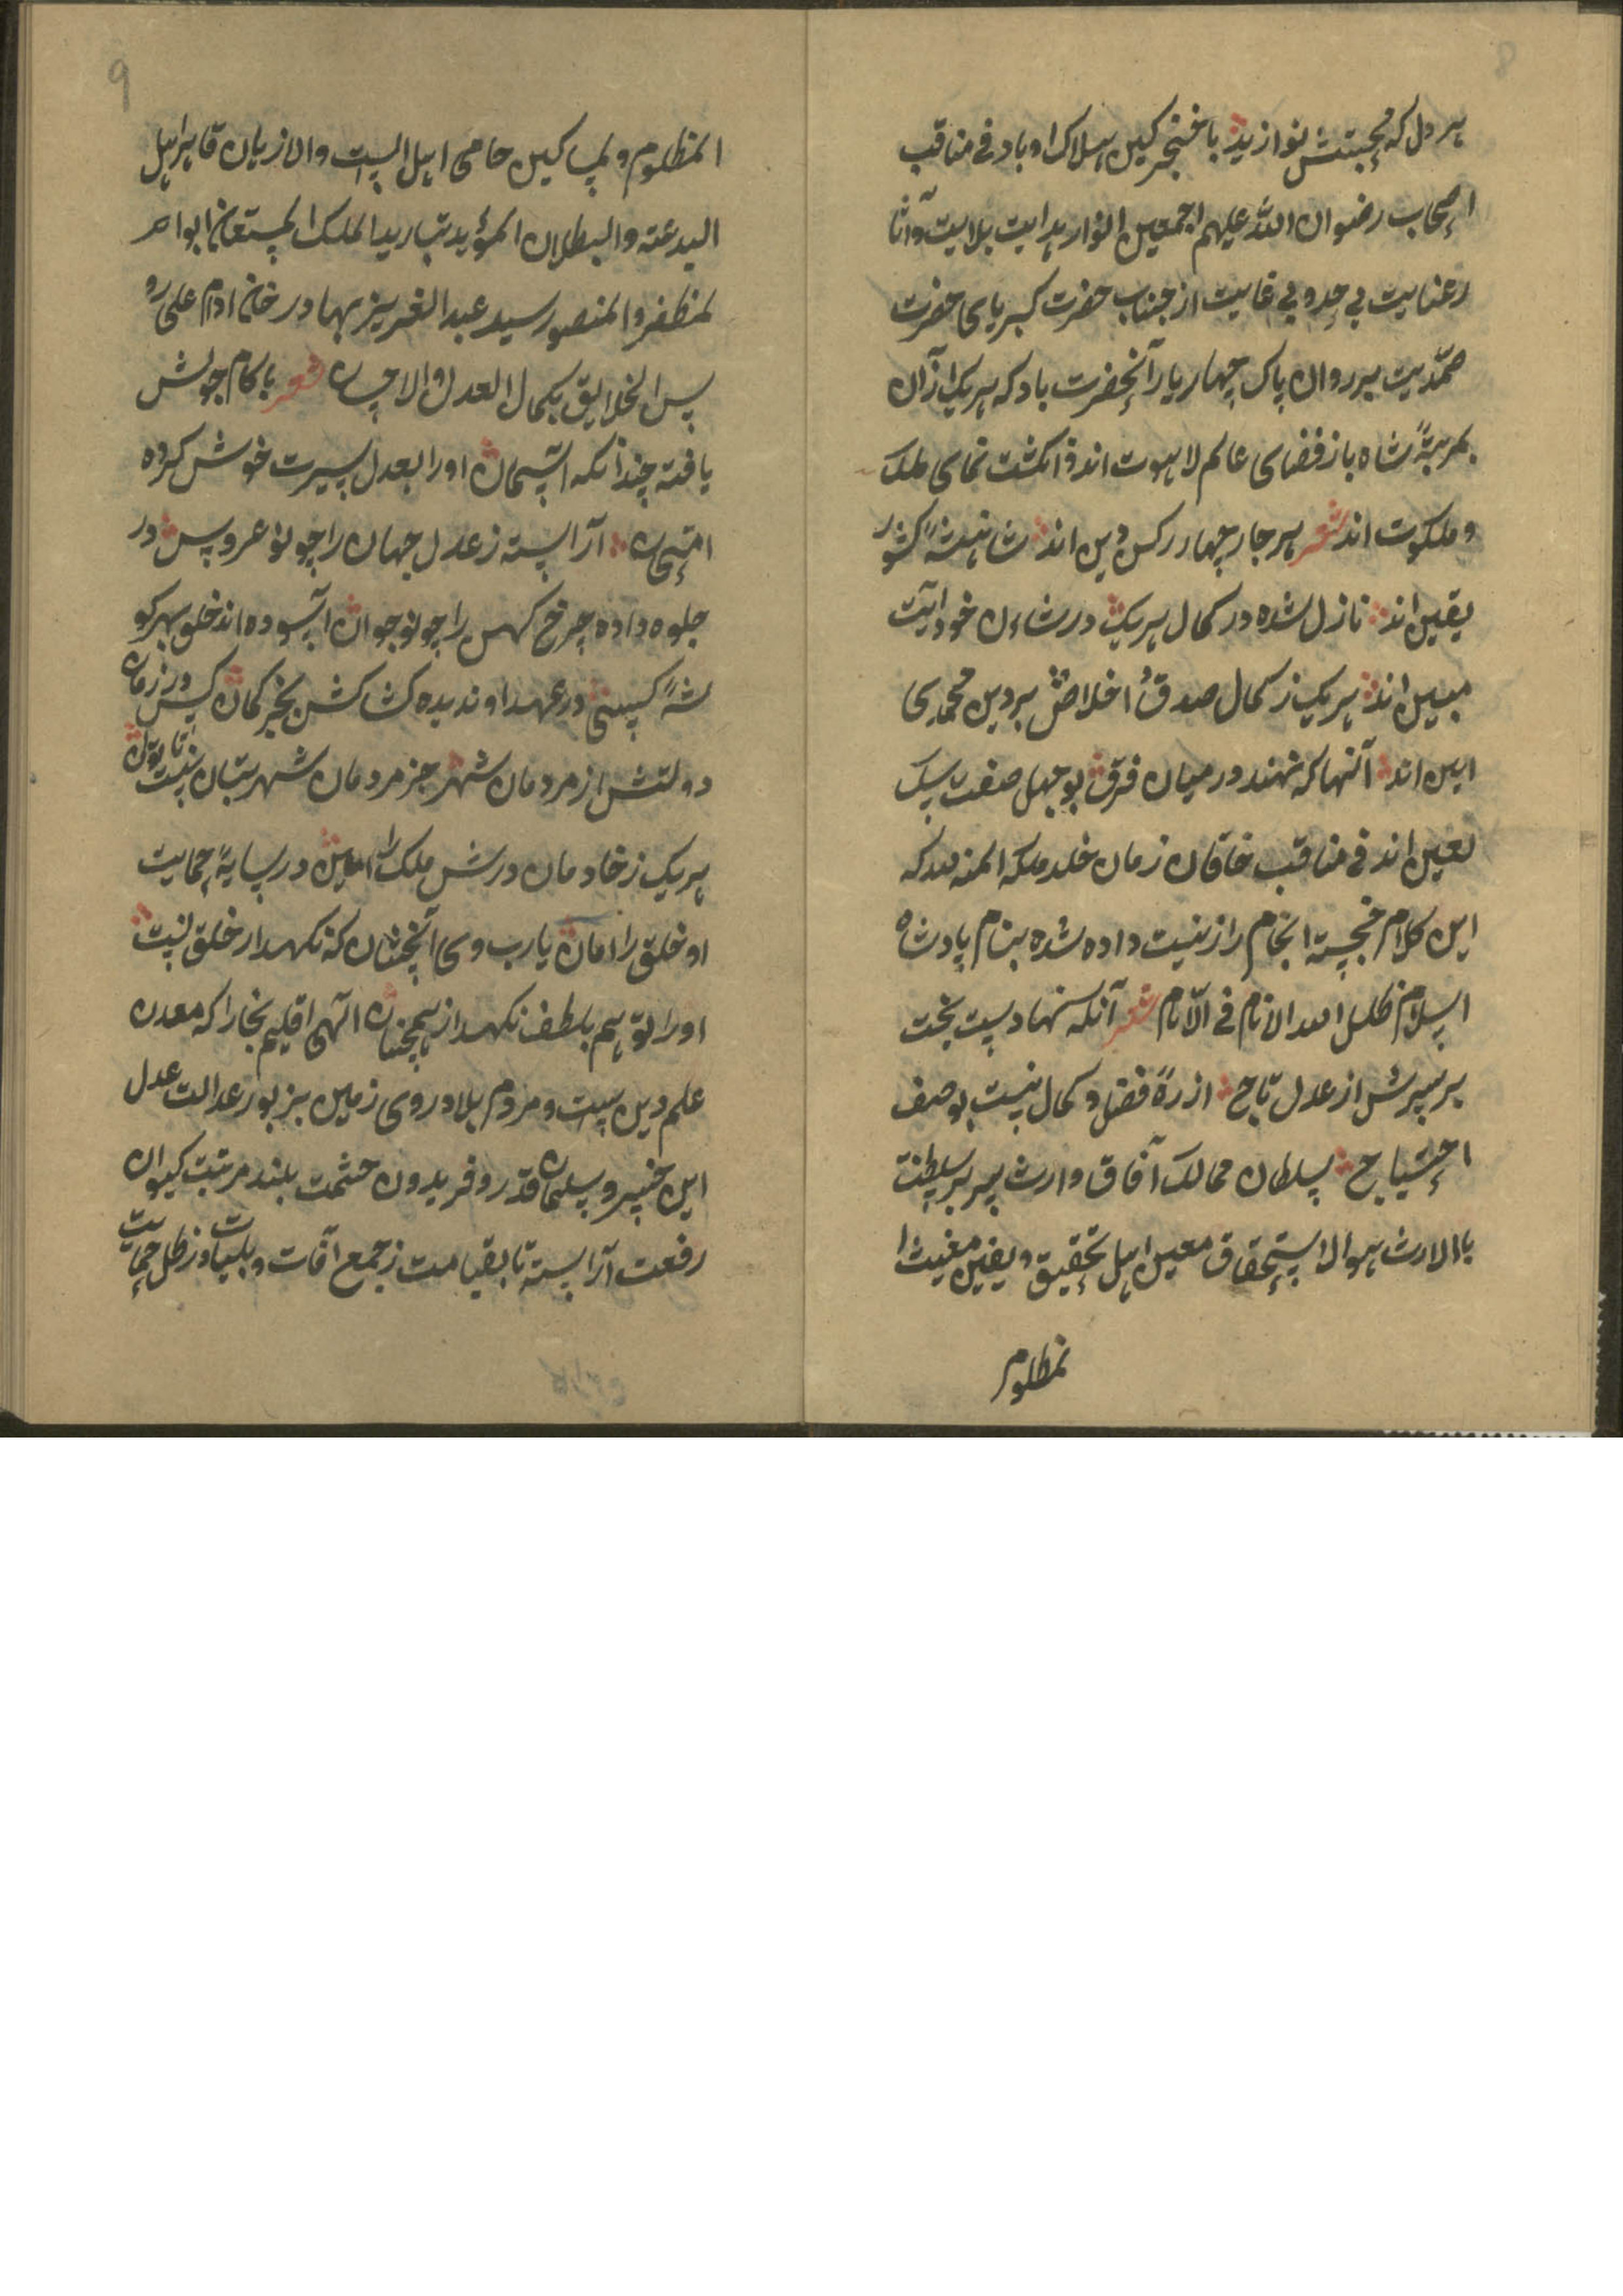 8
هر دل که محبتش نوازید با خنجر کین هلاک او باد فی مناقب
اصحاب رضوان الله علیهم اجمعین انوار هدایت بلایت و آثا
ر عنایت بی حد و بی غایت از جناب حضرت کبریای حضرت
صمدیت بر روان پاک چهار یار آنحضرت باد که هر یک از آن
بمرتبهٔ شاه باز فضای عالم لاهوت اند و انکشت نمای ملک
و ملکوت اند شعر هر چار چهار رکن دین اند شاهنشهٔ کشور
یقین اند نازل شده در کمال هر یک در شان خود آیت
مبین اند هر یک ز کمال صدق و اخلاص بر دین محمدی
امین اند آنها که نهند در میان فرق بوجهل صفت سک
لعین اند فی مناقب خاقان زمان خلد ملکه المنه لله که
این کلام خجسته انجام را زینت داده شده بنام پادشاه
اسلام ظل الله الانام فی الانام شعر آنکه نهادست بخت
بر سرش از عدل تاج از رهٔ فضل و کمال نیست بوصف
احتیاج سلطان ممالک آفاق وارث سریر سلطنت
بالارث هو الاستحقاق معین اهل تحقیق و یقین مغیث ا
لمظلوم
9
المظلوم و لمساکین حامی اهل السیت والازیان قاهر اهل
البدعته والبطلان المؤید بتایید الملک المستعان ابوا
لمظفر والمنصور سید عبد العزیز بهادر خان ادام علی رو
س الخلایق بکمال العدل والاحسان شعر با کام جولش
یافته چندانکه آسمان او را بعدل سیرت خوش کرده
امتحان آراسته ز عدل جهان را چو نو عروس در
جلوه داده چرخ کهن را چو نوجوان آسوده اند خلق بهر کو
شهٔ کسی در عهد او ندیده کشاکش بجز کمان کس در زمان
دولتش از مردمان شهر جز مردمان شهر بتان نیست ناتوان
هر یک ز خادمان درش ملک را امین در سایهٔ حمایت
او خلق را امان یارب وی آنچنان که نکهدار خلق تست
او را تو هم بلطف نکهدار همچنان آلهی اقلیم بخارا که معدن
علم دین ست و مردم بلاد روی زمین بزیور عدالت عدل
این خسرو سلیمان قدر و فریدون حشمت بلند مرتبت کیوان
رفعت آراسته تا بقیامت ز جمع آفات و بلیات و ز ظل حمایت